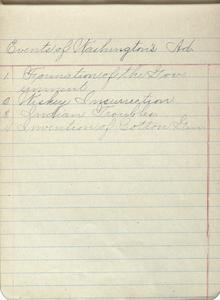 Events of Washington's Ad.
1. Formation of the Gove
rnment
2. Wiskey Insurrection
3. Indian Troubles
4. Invention of Cotton Gin